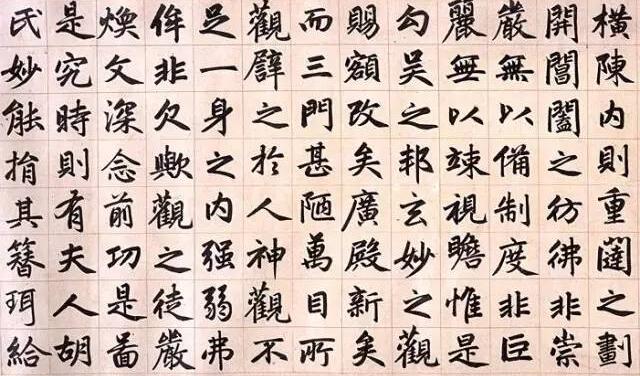 橫陳内則重闥之劃
開閶闔之彷彿非崇
嚴無以備制度非巨
麗無以竦視瞻惟是
勾吴之邦玄妙之觀
賜額改矣廣殿新矣
而三門甚陋萬目所
觀譬之於人神觀不
足一身之内强弱弗
侔非欠歟觀之徒嚴
焕文深念前功是啚
是究時則有夫人胡
氏妙能捐其簪珥給